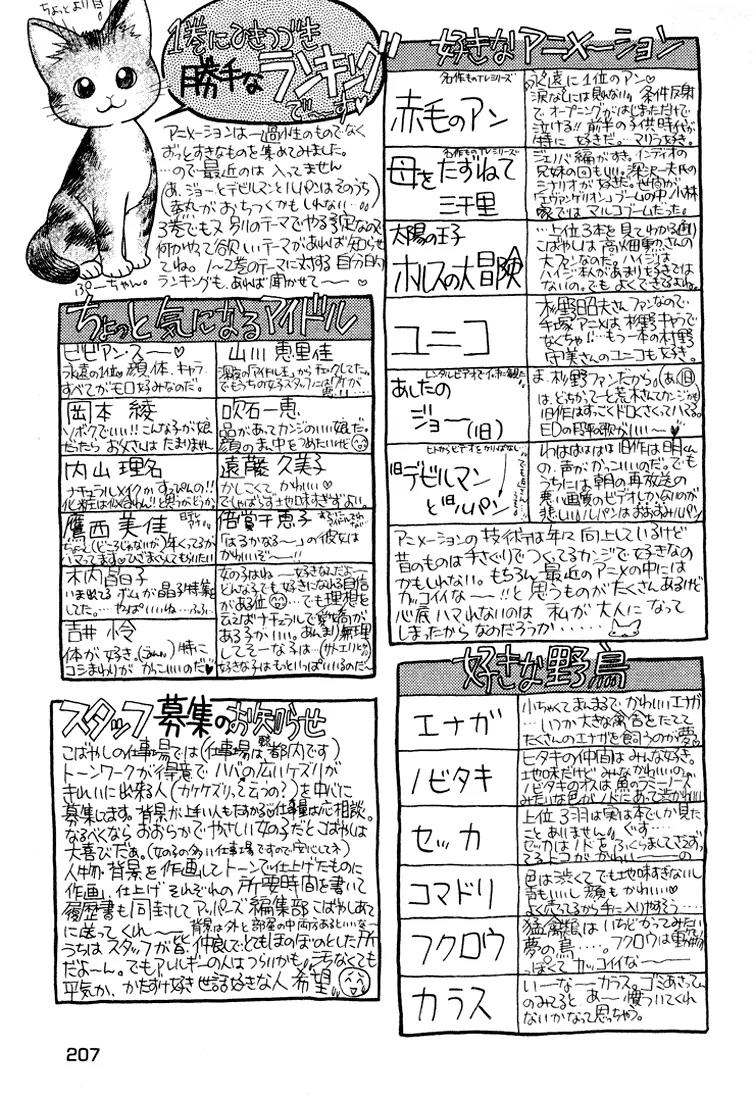 ちょっとより目
1巻にひきつづき
勝手な
ランキング
で〜す♡
アニメーションは一過性のものでなく
ずっとすきなものを集めてみました。
…ので最近のは入ってません
(あ、ジョーとデビルマンとルパンはそのうち
3巻でもまた別のテーマでやる予定なので
何かやって欲しいテーマがあれば知らせ
てね。1〜2巻のテーマに対する自分的
ランキングも、あれば聞かせて〜〜♡
ぷーちゃん。
ちょっと気になるアイドル
ビビアン・スー〜♡
永遠の1位。顔、体、キャラ、
すべてがモロ好みなのだ。
山川恵里佳
岡本 綾
ソボクでいい!!こんな子が娘
だったらお父さんはたまりません
吹石一恵
品があってカンジのいい娘だ。
顔のまん中をつめたいけど
内山理名
ナチュラルメイクか、すっぴんの!!
化粧は似合わん!!と思うがどうか。
遠藤久美子
かしこくて、かわいい♡
でしゃばらず地味すぎずよい。
鷹西美佳
ハマってます♡ひざまくらしてもらいたい
倍賞千恵子
「はるかなる〜」の彼女は
かわいいぞ〜〜!!
木内晶子
いまめくってるボムが晶子特集
してた。…やっぱいいね…ふふ…
吉井 怜
体が好き。(うんうん)特に
コシまわりがかっこいいのだ♥
女の子はね〜〜好きなんだよ〜
どんな子でも好きになれる自信
がある位 …でも理想を
いえばナチュラルで愛嬌が
ある子がいい。あんまり無理
してそーな子は…
好きな子はもといっぱいいるのだ〜
スタッフ募集のお知らせ
こばやしの仕事場では(仕事場は都内です)
トーンワークが得意でハバの広いケズリが
きれいに出来る人(カケケズリ、と云うの?)を中心に
募集します。背景が上手い人もたすかる♡仕事量は応相談。
なるべくならおおらかでやさしい女の子だとこばやしは
大喜びだぁ。(女の子の多い仕事場ですので安心して)
人物、背景を作画してトーンで仕上げたものに
作画、仕上げそれぞれの所要時間を書いて
履歴書も同封してアッパーズ編集部こばやしあて
に送ってくれ〜〜背景は外と部屋の中両方あるといいな〜
うちはスタッフが皆、仲良しでとてもほのぼのとした所
だよ〜ん。でもアレルギーの人はつらいかも。汚なくても
平気か、かたずけ好き世話好きな人希望。
好きなアニメーション
名作ものTVシリーズ
赤毛のアン
永遠に1位のアン♡
涙なしには見れない。条件反射
で、オープニングがはじまっただけで
泣ける!!前半の子供時代が
特に好きだ。マリラ好き。
名作ものTVシリーズ
母をたずねて
三千里
ジェノバ編がすき。インディオの
兄妹の回もいい。深沢一夫氏の
シナリオが好きだ。世間が
「エヴァンゲリオン」ブームの中、小林
家ではマルコブームだった。
太陽の王子
ホルスの大冒険
…上位3本を見てわかる通り
こばやしは高畑勲さんの
大ファンなのだ。ハイジは
ハイジ本人があまり好きでは
ないの。でもよくできてるよね。
ユニコ
杉野昭夫さんファンなので
手塚アニメは杉野キャラで
なくちゃ!!…もう一本の村野
守美さんのユニコも好き。
あしたの
ジョー(旧)
ま、杉野ファンだから。(あ、旧
は、どちらかってーと荒木さんカンジかも)
旧作はすっごくドロくさくってハマる。
EDの段平の歌がいい〜〜♡
旧デビルマン
と旧ルパン
わはははは旧作は明くん
の声がかっこいいのだ。でも
うちには朝の再放送の
悪い画質のビデオしかないのが
悲しい!!ルパンはおおすみルパン
アニメーションの技術は年々向上しているけど
昔のものは手さぐりでつくってるカンジで好きなの
かもしれない。もちろん、最近のアニメの中には
カッコイイな〜〜!!と思うものがたくさんあるけど
心底ハマれないのは 私が大人になって
しまったからなのだろうか‥‥‥
好きな野鳥
エナガ
小ちゃくてまんまるで、かわいいエナガ
…いつか大きな禽舎をたてて
たくさんのエナガを飼うのが夢♡
ノビタキ
ヒタキの仲間はみんな好き。
地味だけどみんなかわいいの。
セッカ
上位3羽は実は本でしか見た
ことありません。ぐす…
セッカはノドをふくらましてさえずっ
てるトコがかわい〜〜〜の
コマドリ
色は渋くてでも地味すぎないし
声もいいし顔もかわいい♡
よく売ってるから手に入りそう…
フクロウ
猛禽類はいちどかってみたい
夢の鳥…。フクロウは動物
っぽくてカッコイイな〜〜
カラス
い〜な〜〜カラス。ゴミあさって
のみてると あ〜 懐ついてくれ
ないかなって思っちゃう。
207